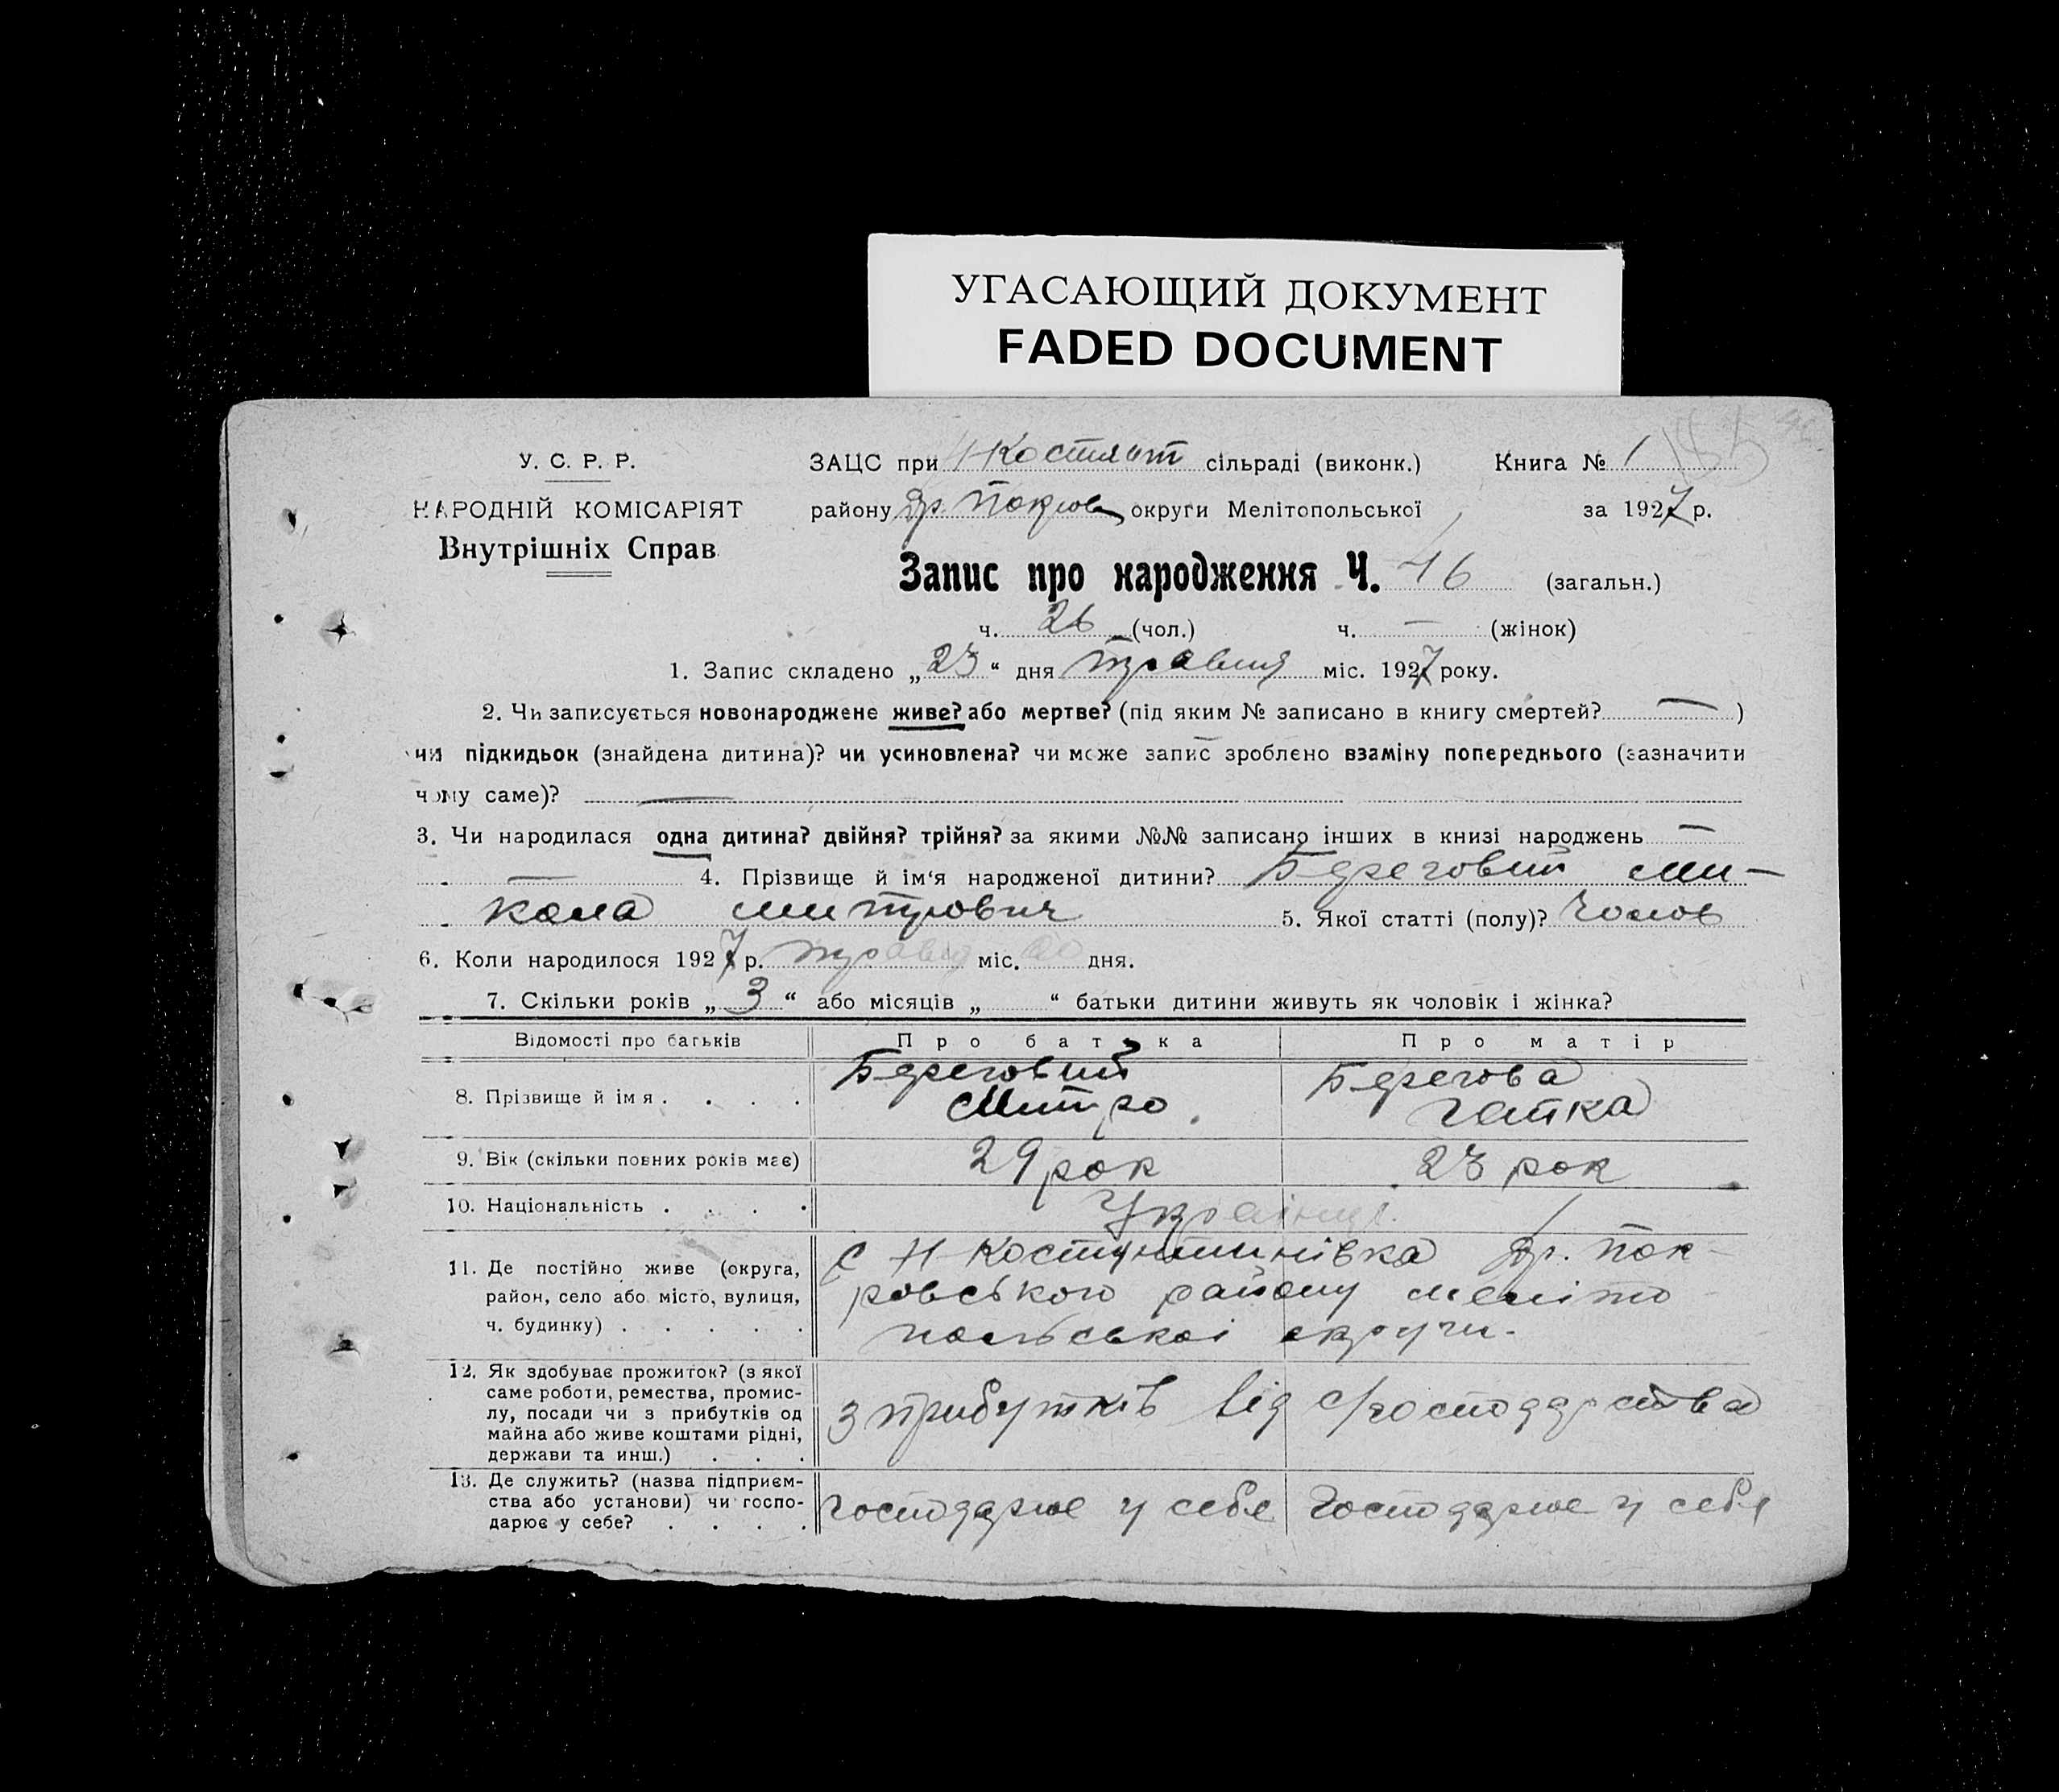 УГАСАЮЩИЙ ДОКУМЕНТ
FADED DOCUMENT
У. С. Р. Р.
НАРОДНІЙ КОМІСАРІЯТ
Внутрішніх Справ
ЗАЦС при Н-Костянт сільраді (виконк.) Книга № 1
району Др. Покров округи Мелітопольської за 1927 р.
Запис про народження Ч. 46 (загальн.)
ч. 26 (чол.) ч. — (жінок)
1. Запис складено „23“ дня травня міс. 1927 року.
2. Чи записується новонароджене живе? або мертве? (під яким № записано в книгу смертей? — )
чи підкидьок (знайдена дитина)? чи усиновлена? чи може запис зроблено взаміну попереднього (зазначити
чому саме)? —
3. Чи народилася одна дитина? двійня? трійня? за якими №№ записано інших в книзі народжень —
— 4. Прізвище й ім‘я народженої дитини? Береговий Ми-
кола Митрович 5. Якої статті (полу)? Чолов
6. Коли народилося 1927 р. травня міс. дня.
7. Скільки років „3“ або місяців „ “ батьки дитини живуть як чоловік і жінка?
Відомості про батьків Про батька Про матір
8. Прізвище й імя. . . . Береговий Митро. Берегова
9. Вік (скільки повних років має) 29 рок 23 рок
10. Національність . . . . Українці.
11. Де постійно живе (округа, район, село або місто, вулиця, ч. будинку) . . . . .
с Н Костянтинівка Др. Пок-
ровського району меліто
польської округи.
12. Як здобуває прожиток? (з якої
саме роботи, ремества, промис-
лу, посади чи з прибутків од
майна або живе коштами рідні,
держави та инш.) . . .
з прибутків від с/господарства
13. Де служить? (назва підприєм-
ства або установи) чи госпо-
дарює у себе? . . . .
господарює у себе господарює у себе